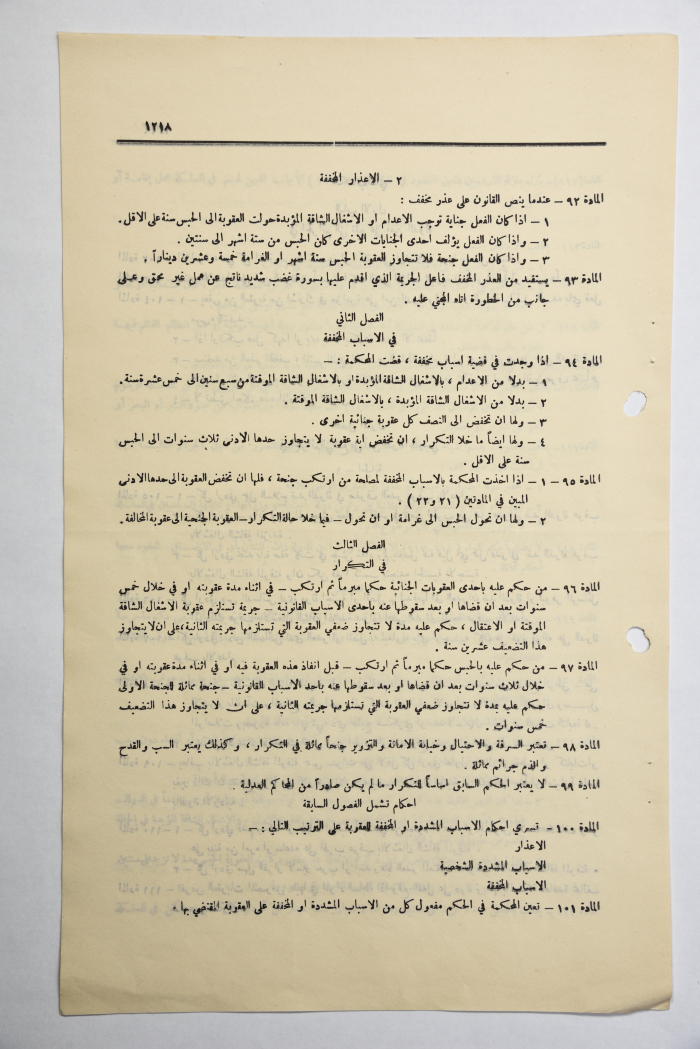 ١٢١٨
٢ – الاعذار المخففة
المادة ٩٢ – عندما ينص القانون على عذر مخفف :
١ – اذا كان الفعل جناية توجب الاعدام او الاشغال الشاقة المؤبدة حولت العقوبة الى الحبس سنة على الاقل .
٢ – واذا كان الفعل يؤلف احدى الجنايات الاخرى كان الحبس من ستة اشهر الى سنتين .
٣ – واذا كان الفعل جنحة فلا تتجاوز العقوبة الحبس ستة اشهر او الغرامة خمسة وعشرين ديناراً .
المادة ٩٣ – يستفيد من العذر المخفف فاعل الجريمة الذي اقدم عليها بسورة غضب شديد ناتج عن عمل غير محق وعلى
جانب من الخطورة اتاه المجني عليه .
الفصل الثاني
في الاسباب المخففة
المادة ٩٤ – اذا وجدت في قضية اسباب مخففة ، قضت المحكمة : –
١ – بدلا من الاعدام ، بالاشغال الشاقة المؤبدة او بالاشغال الشاقة الموقتة من سبع سنين الى خمس عشرة سنة .
٢ – بدلا من الاشغال الشاقة المؤبدة ، بالاشغال الشاقة الموقتة .
٣ – ولها ان تخفض الى النصف كل عقوبة جنائية اخرى .
٤ – ولها ايضاً ما خلا التكرار ، ان تخفض اية عقوبة لا يتجاوز حدها الادنى ثلاث سنوات الى الحبس
سنة على الاقل .
المادة ٩٥ – ١ – اذا اخذت المحكمة بالاسباب المخففة لمصلحة من ارتكب جنحة ، فلها ان تخفض العقوبة الى حدها الادنى
المبين في المادتين ( ٢١ و ٢٢ ) .
٢ – ولها ان تحول الحبس الى غرامة او ان تحول – فيما خلا حالة التكرار – العقوبة الجنحية الى عقوبة المخالفة .
الفصل الثالث
في التكرار
المادة ٩٦ – من حكم عليه باحدى العقوبات الجنائية حكما مبرماً ثم ارتكب – في اثناء مدة عقوبته او في خلال خمس
سنوات بعد ان قضاها او بعد سقوطها عنه باحدى الاسباب القانونية – جريمة تستلزم عقوبة الاشغال الشاقة
الموقتة او الاعتقال ، حكم عليه مدة لا تتجاوز ضعفي العقوبة التي تستلزمها جريمته الثانية ، على ان لا يتجاوز
هذا التضعيف عشرين سنة .
المادة ٩٧ – من حكم عليه بالحبس حكما مبرماً ثم ارتكب – قبل انفاذ هذه العقوبة فيه او في اثناء مدة عقوبته او في
خلال ثلاث سنوات بعد ان قضاها او بعد سقوطها عنه باحد الاسباب القانونية – جنحة مماثلة للجنحة الاولى
حكم عليه بمدة لا تتجاوز ضعفي العقوبة التي تستلزمها جريمته الثانية ، على ان لا يتجاوز هذا التضعيف
خمس سنوات .
المادة ٩٨ – تعتبر السرقة والاحتيال وخيانة الامانة والتزوير جنحاً مماثلة في التكرار ، وكذلك يعتبر السب والقدح
والذم جرائم مماثلة .
المادة ٩٩ – لا يعتبر الحكم السابق اساساً للتكرار ما لم يكن صادراً من المحاكم العدلية .
احكام تشمل الفصول السابقة
المادة ١٠٠ – تسري احكام الاسباب المشددة او المخففة للعقوبة على الترتيب التالي : –
الاعذار
الاسباب المشددة الشخصية
الاسباب المخففة
المادة ١٠١ – تعين المحكمة في الحكم مفعول كل من الاسباب المشددة او المخففة على العقوبة المقضي بها .